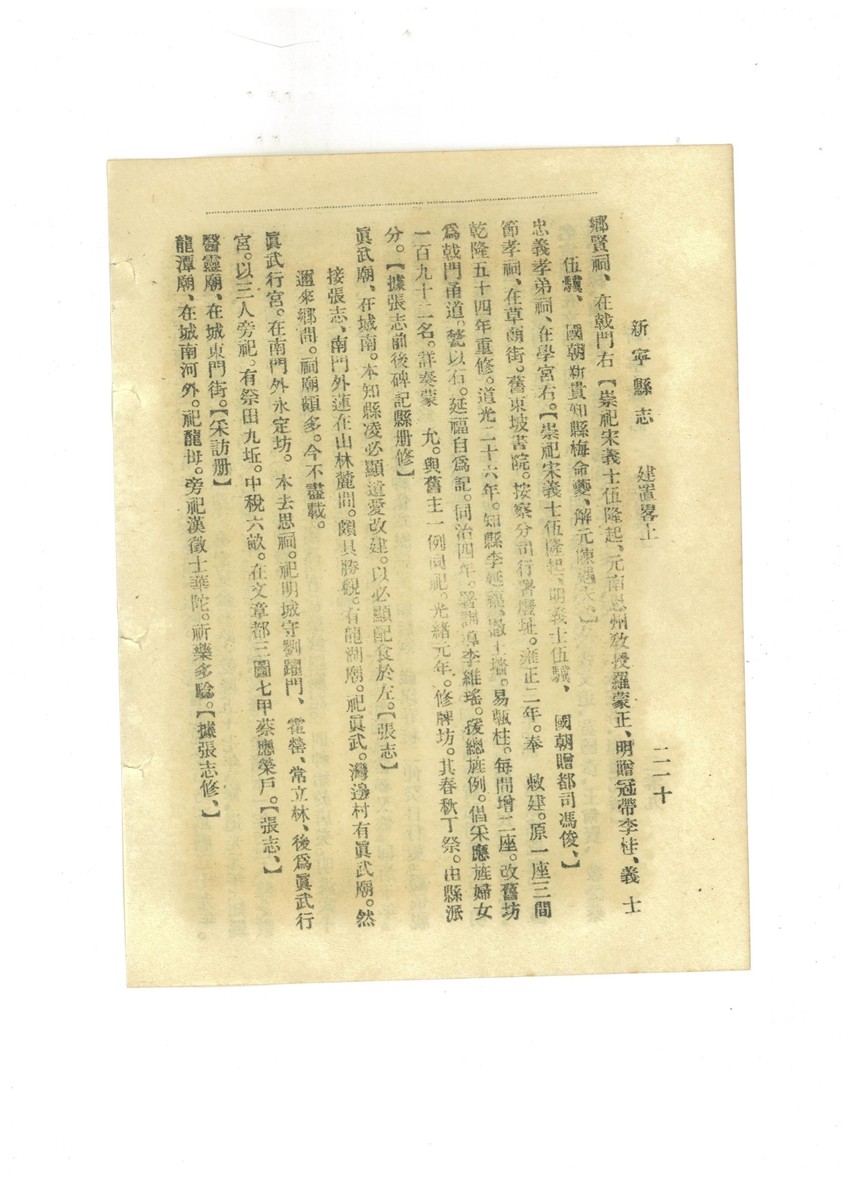 新寧縣志　建置畧上　二一十
鄉賢祠、在戟門右【崇祀宋義士伍隆起、元南恩州教授羅蒙正、明贈冠帶李桂、義士
伍驥、　國朝新貴知縣梅命夔、解元陳遇夫、】
忠義孝弟祠、在學宮右。【崇祀宋義士伍隆起、明義士伍驥、　國朝贈都司馮俊、】
節孝祠、在草蓢街。舊東坡書院。按察分司行署廢址。雍正二年。奉　敕建。原一座三間
乾隆五十四年重修。道光二十六年。知縣李延福、撤土墻。易甎柱。每間增二座。改舊坊
為戟門甬道。甃以石。延福自為記。同治四年。署訓導李維瑤。援總旌例。倡采應旌婦女
一百九十二名。詳奏蒙　允。與舊主一例同祀。光緒元年。修牌坊。其春秋丁祭。由縣派
分。【據張志前後碑記縣册修】
眞武廟、在城南。本知縣凌必顯遺愛改建。以必顯配食於左。【張志】
接張志、南門外蓮在山林麓間。頗具勝觀。有龍湖廟。祀眞武。灣邊村有眞武廟。然
邇來鄉間。祠廟頗多。今不盡載。
眞武行宮。在南門外永定坊。本去思祠。祀明城守劉躍門、霍㮾、常立林、後為眞武行
宮。以三人旁祀。有祭田九坵。中稅六畝。在文章都三圖七甲蔡應榮戶。【張志、】
醫靈廟、在城東門街。【采訪册】
龍潭廟、在城南河外。祀龍母。旁祀漢徵士華陀。祈藥多驗。【據張志修、】